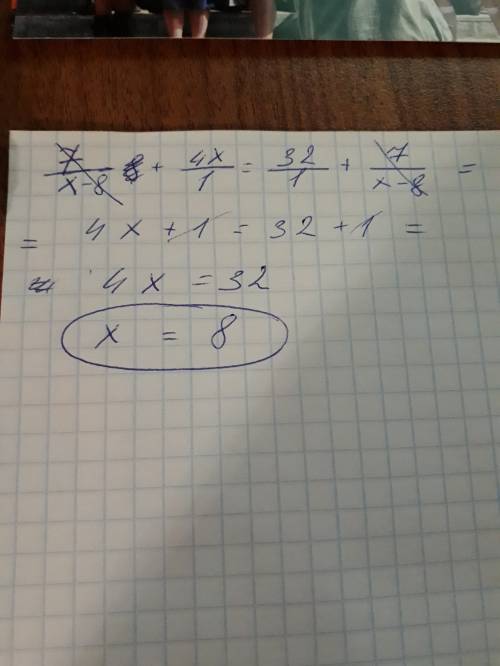 7/x-8 + 4x/1 = 32/1 + 7/x-8 =
= 4x + 1 = 32 + 1 =
4x = 32
x = 8